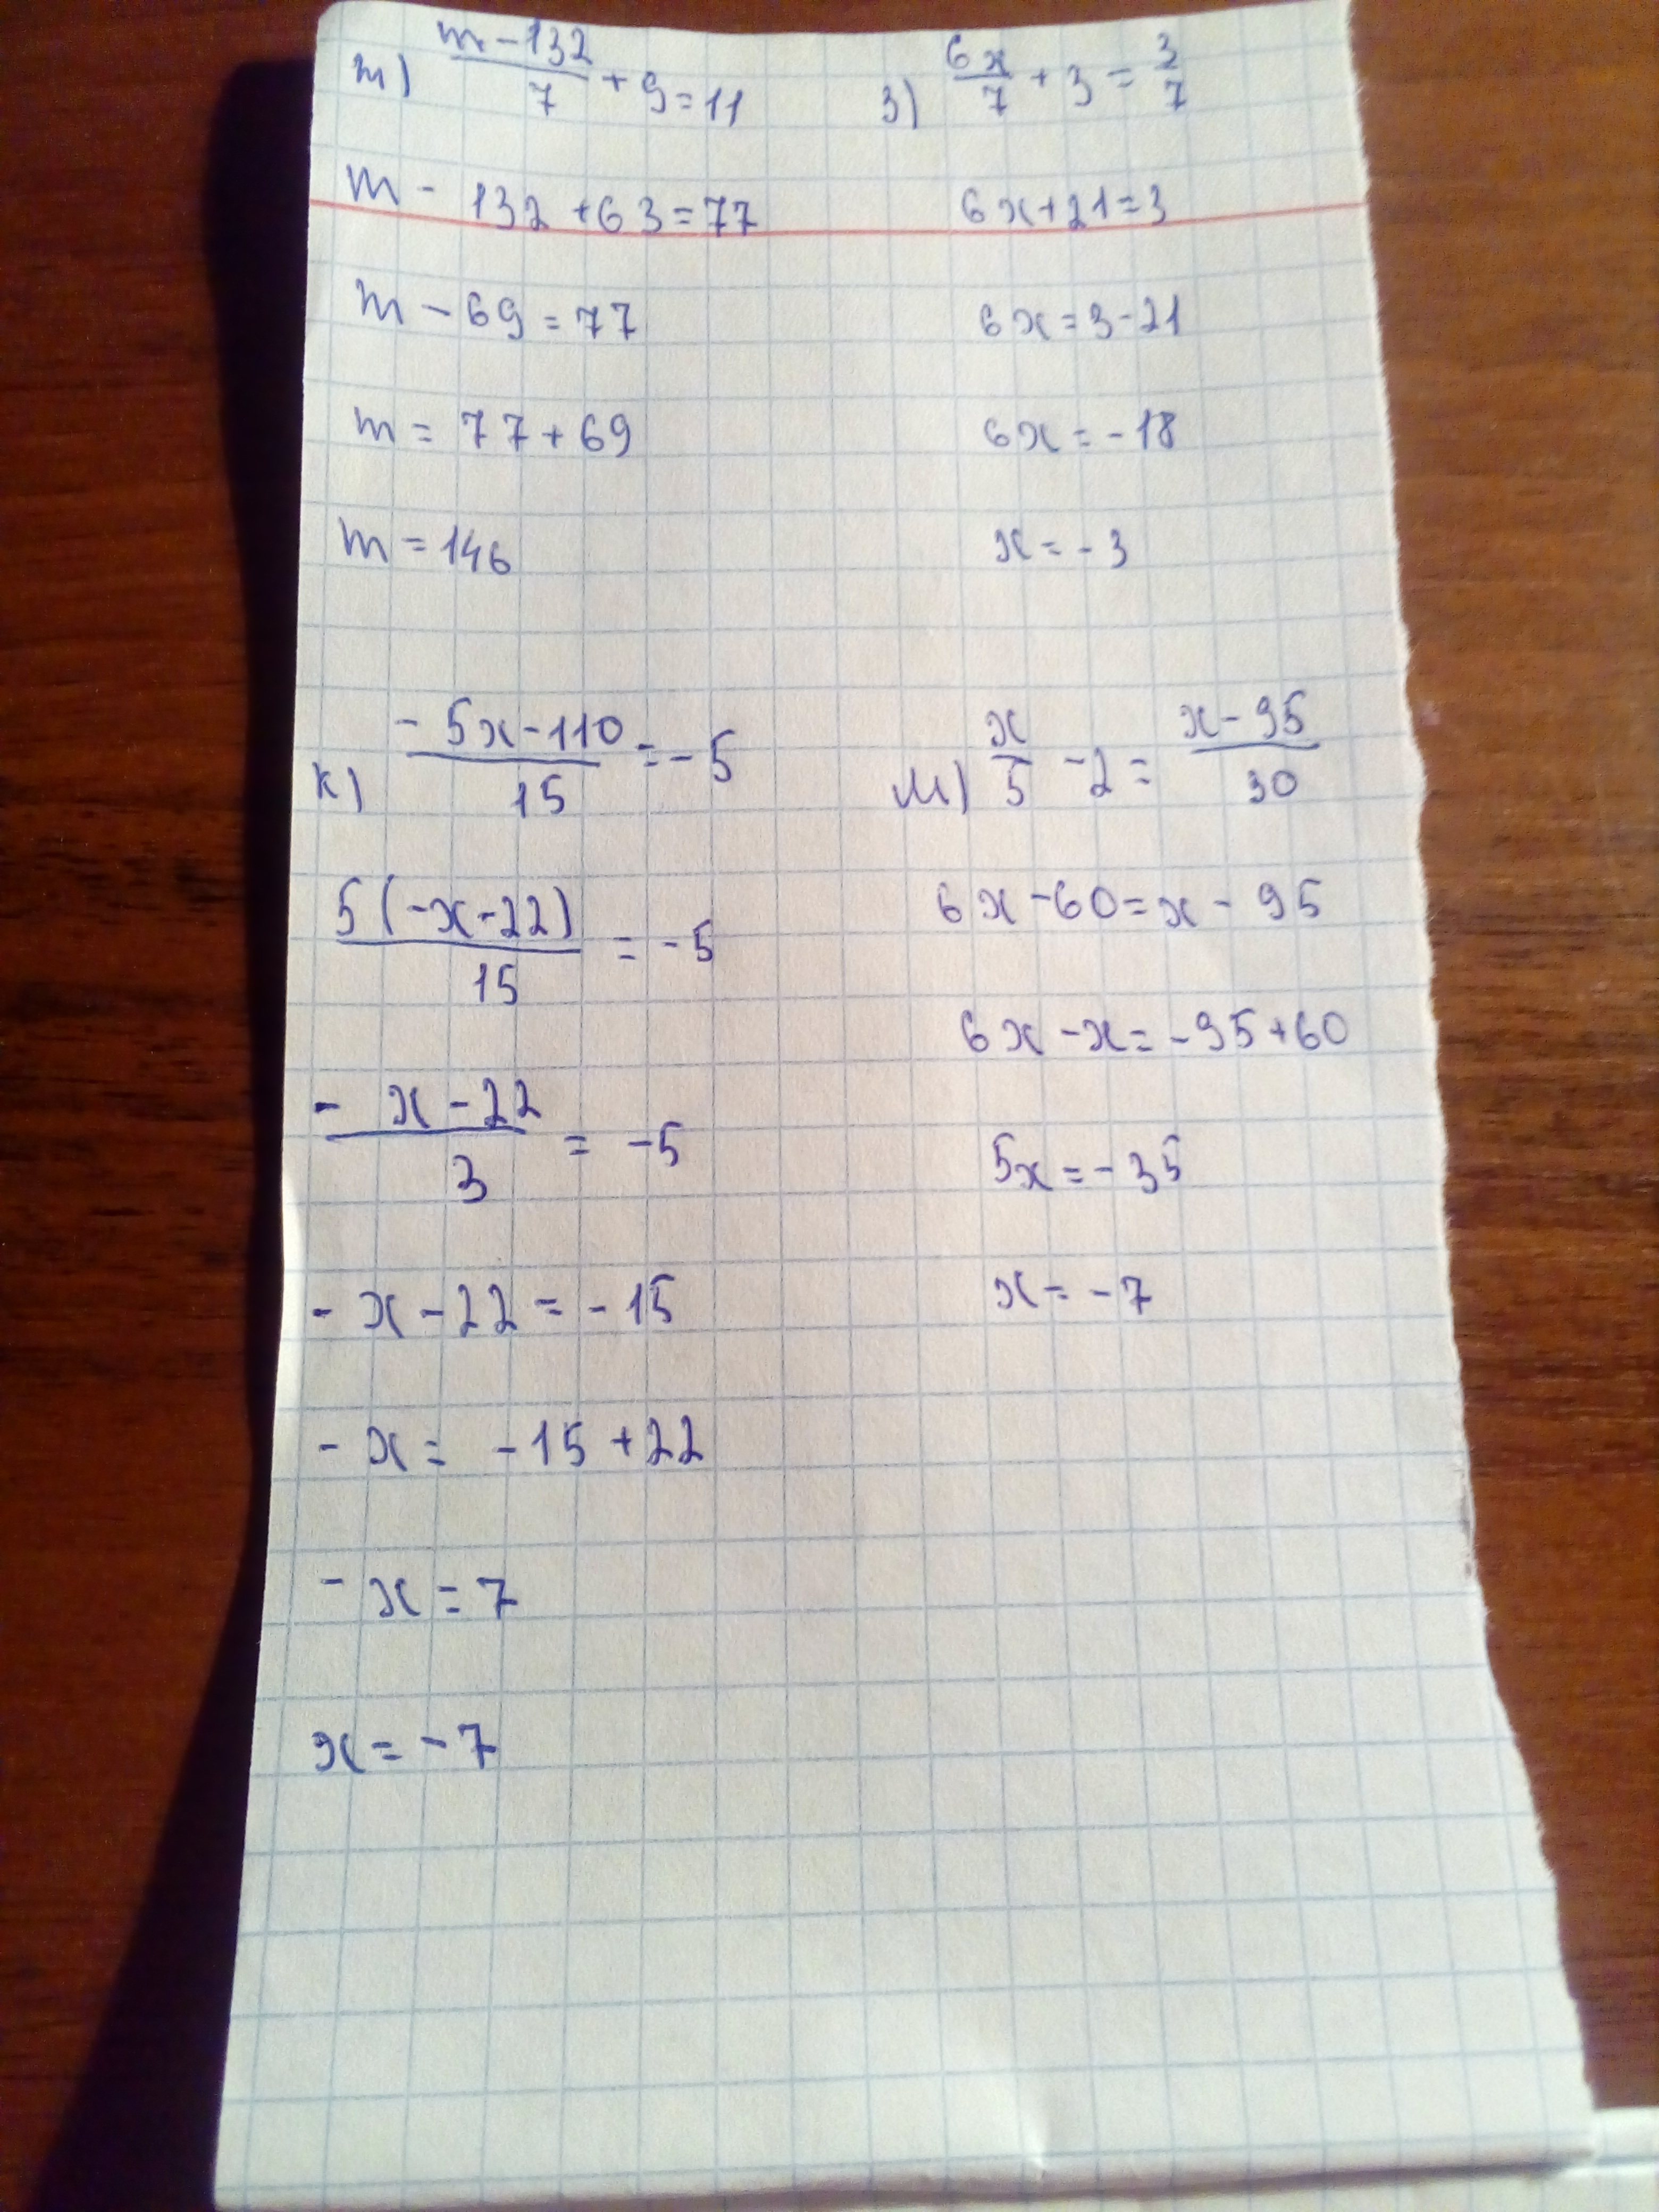 т) (m-132)/7 + 9 = 11
m - 132 + 63 = 77
m - 69 = 77
m = 77 + 69
m = 146
з) 6x/7 + 3 = 3/7
6x+21=3
6x=3-21
6x=-18
x=-3
к) (-5x-110)/15 = -5
5(-x-22)/15 = -5
(-x-22)/3 = -5
-x-22=-15
-x= -15+22
-x=7
x=-7
м) x/5 -2= (x-95)/30
6x-60=x-95
6x-x=-95+60
5x=-35
x=-7